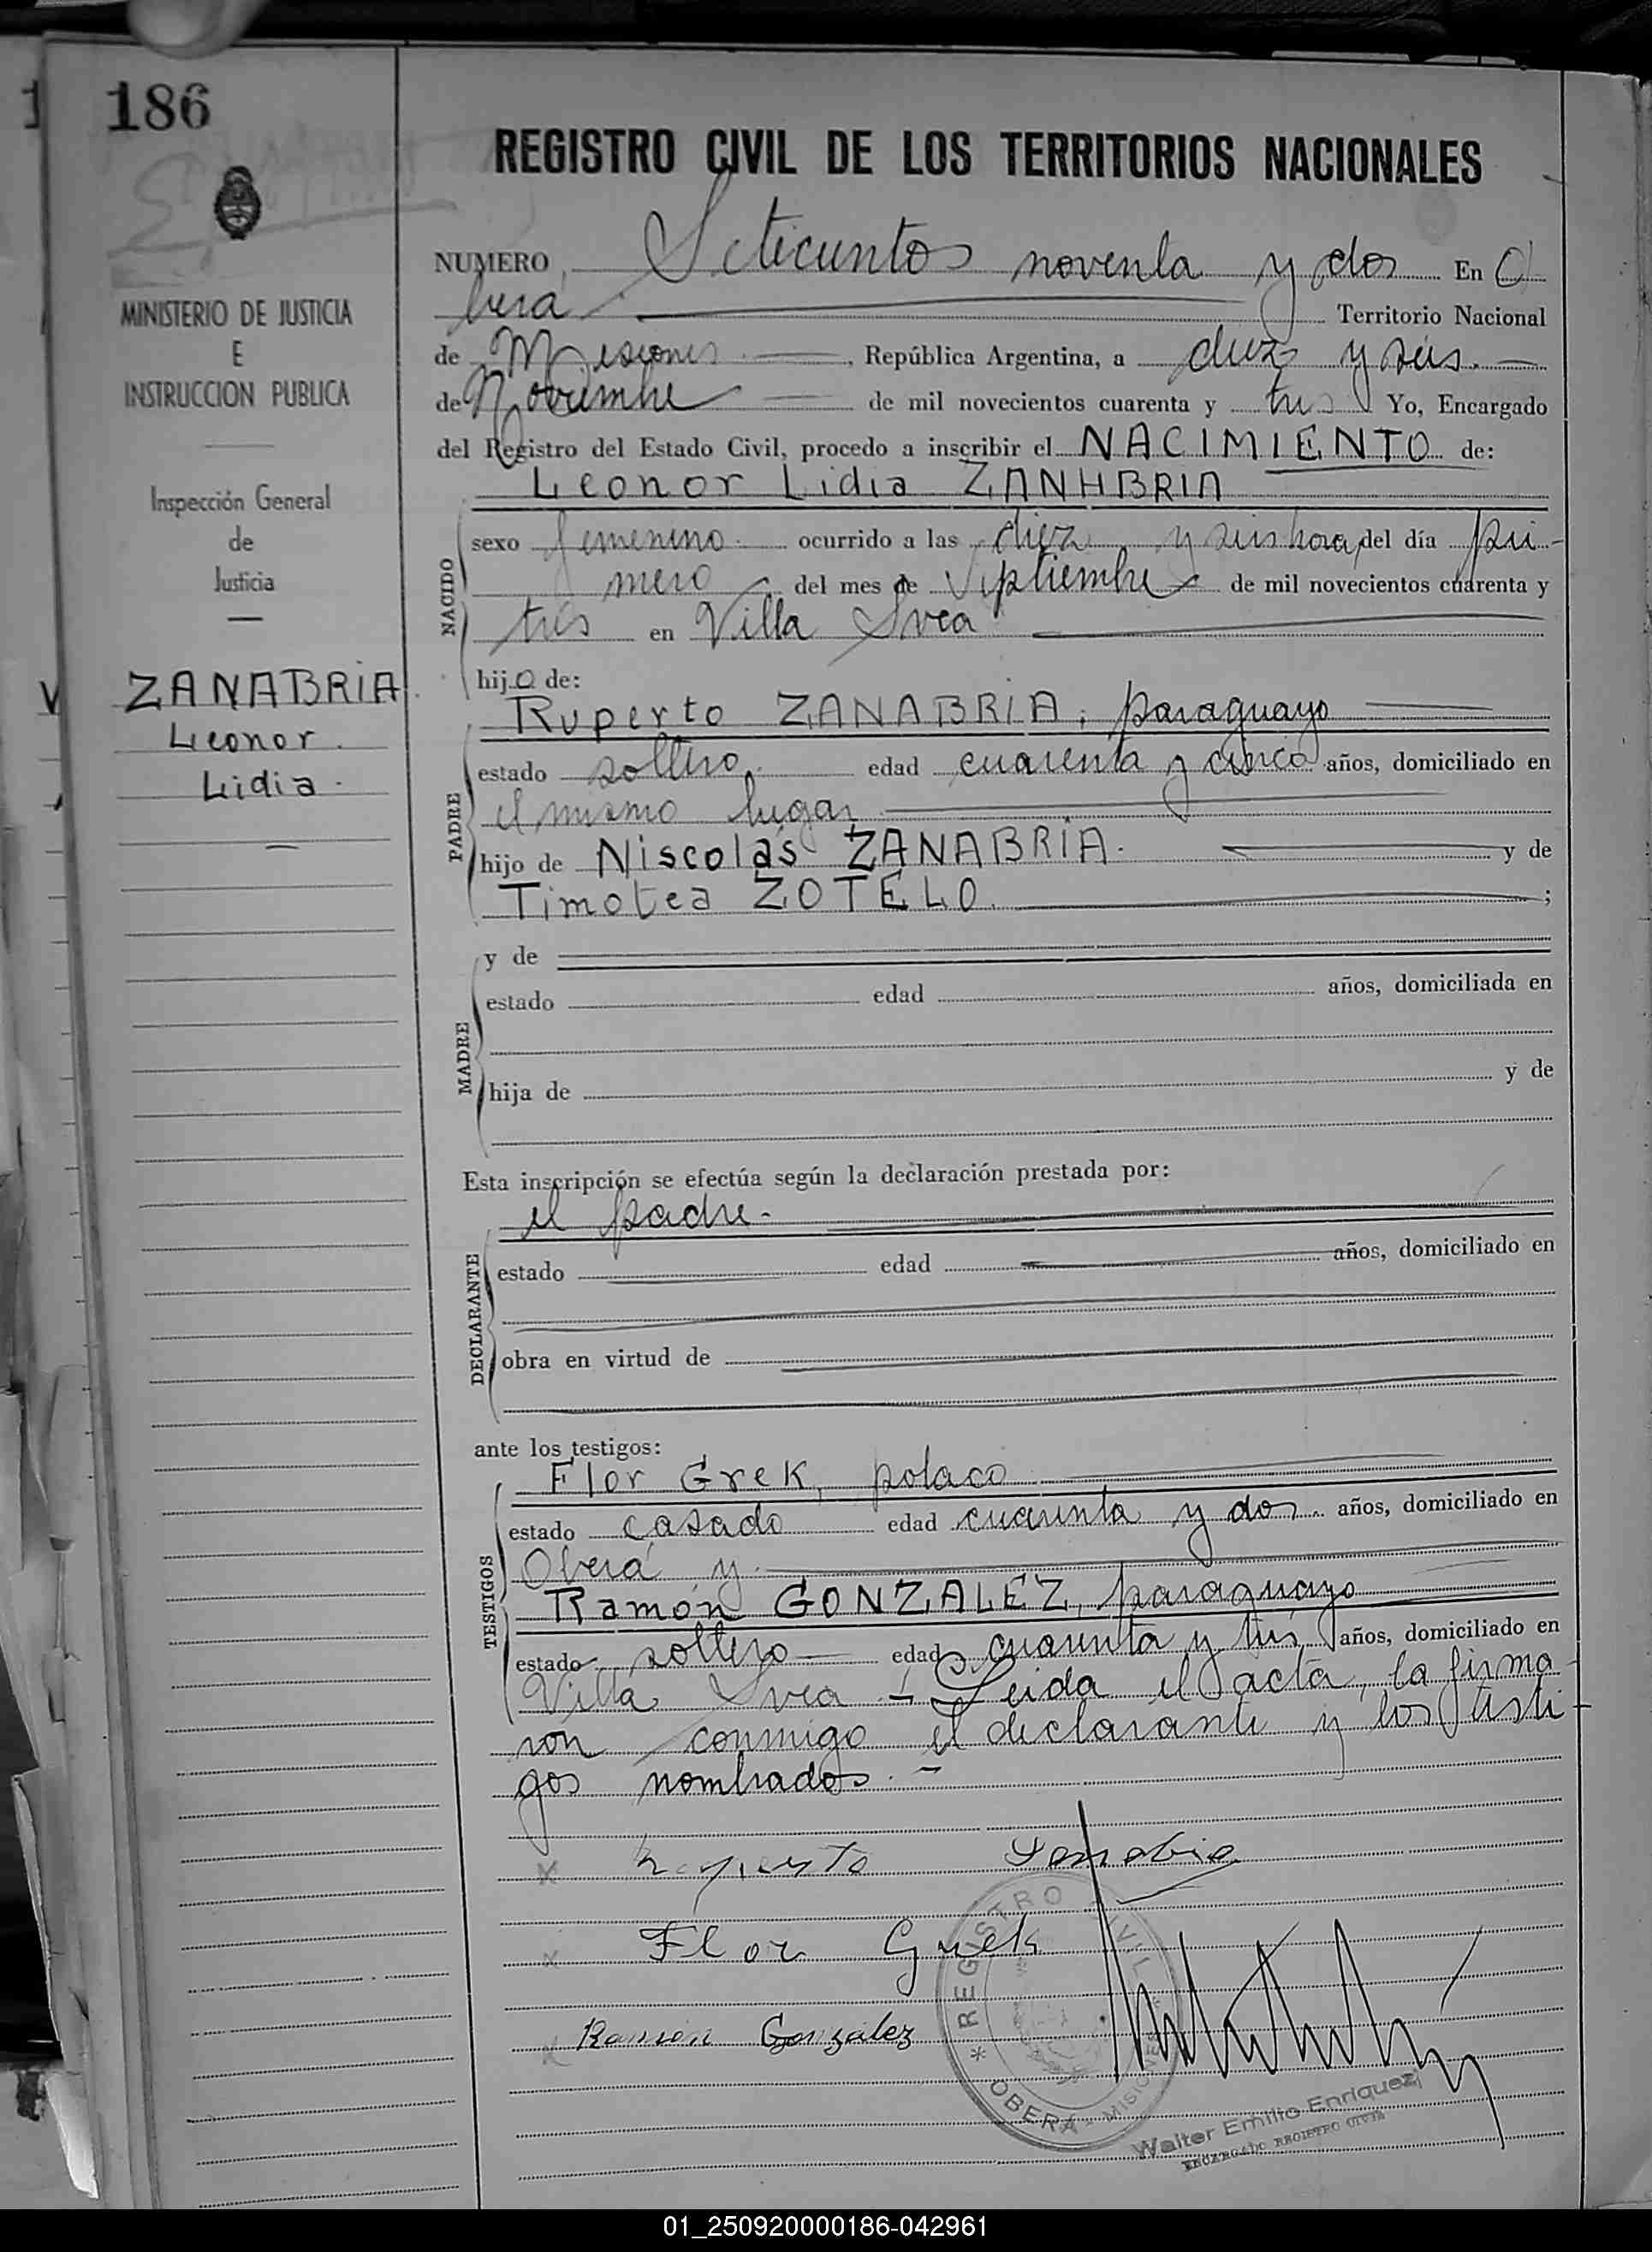 186
REGISTRO CIVIL DE LOS TERRITORIOS NACIONALES
MINISTERIO DE JUSTICIA
E
INSTRUCCION PUBLICA
Inspección General
de
Justicia
ZANABRIA
Leonor
Lidia.
NUMERO Setecientos noventa y dos En O
berá Territorio Nacional
de Misiones, República Argentina, a diez y seis.
de Noviembre de mil novecientos cuarenta y tres Yo, Encargado
del Registro del Estado Civil, procedo a inscribir el NACIMIENTO de:
Leonor Lidia ZANABRIA
NACIDO
sexo femenino. ocurrido a las diez y seis horas del día pri-
mero del mes de Septiembre de mil novecientos cuarenta y
tres en Villa Svea
hijo de:
PADRE
Ruperto ZANABRIA, paraguayo
estado soltero, edad cuarenta y cinco años, domiciliado en
el mismo lugar
hijo de Niscolás ZANABRIA. y de
Timotea ZOTELO. ;
MADRE
y de
estado edad años, domiciliada en
hija de y de
Esta inscripción se efectúa según la declaración prestada por:
DECLARANTE
el padre.
estado edad años, domiciliado en
obra en virtud de
ante los testigos:
TESTIGOS
Flor Grek, polaco
estado casado edad cuarenta y dos años, domiciliado en
Oberá y
Ramón GONZALEZ, paraguayo
estado soltero edad cuarenta y tres años, domiciliado en
Villa Svea - Leida el acta, la firma
ron conmigo el declarante y los testi-
gos nombrados. -
Flor Grek
Ramón González
REGISTRO CIVIL
* OBERÁ - MISIONES
Walter Emilio Enriquez
ENCARGADO REGISTRO CIVIL
01_250920000186-042961